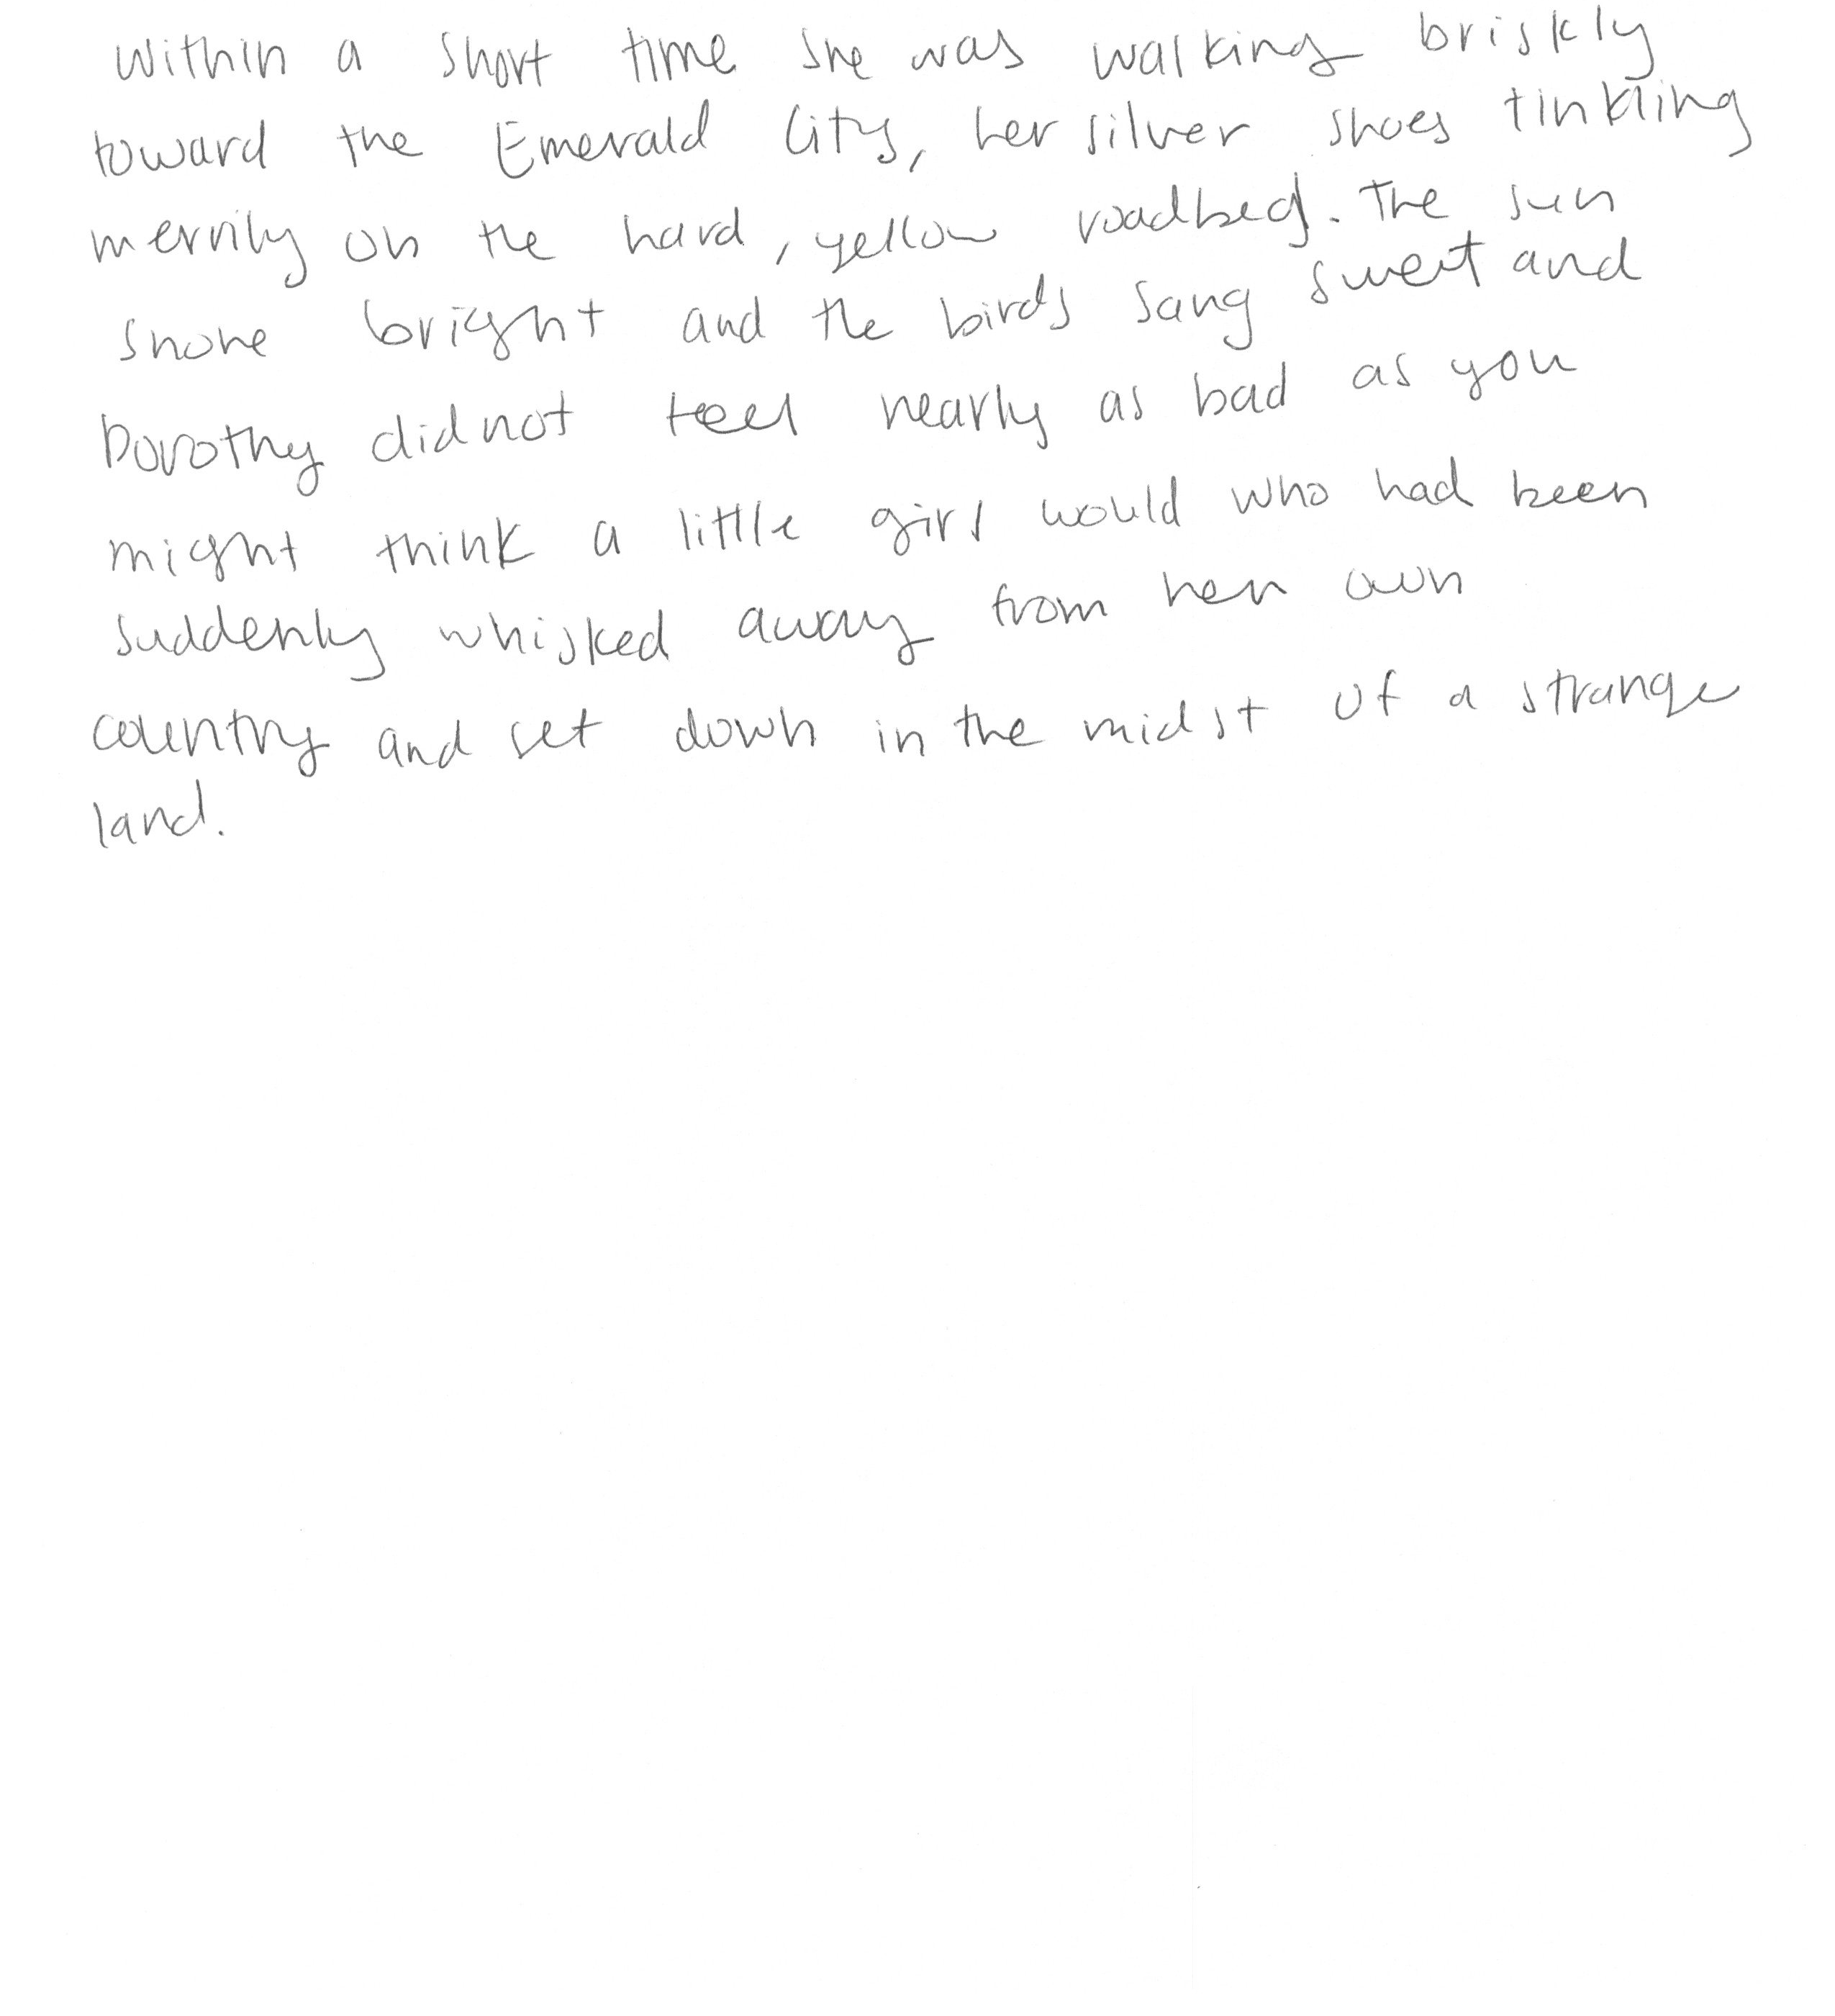 Within a short time she was walking briskly
toward the Emerald City, her silver shoes tinkling
merrily on the hard, yellow roadbed. The sun
shone bright and the birds sang sweet and
Dorothy did not feel nearly as bad as you
might think a little girl would who had been
suddenly whisked away from her own
country and set down in the midst of a strange
land.